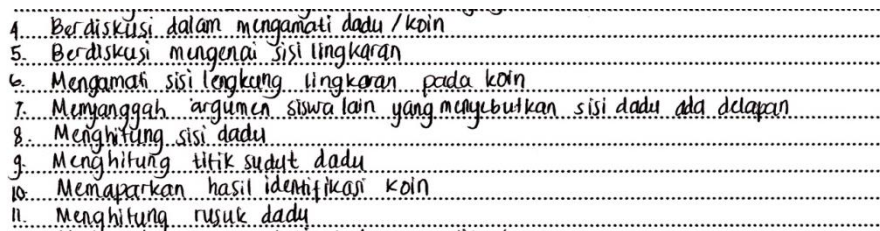 4. Berdiskusi dalam mengamati dadu / koin
5. Berdiskusi mengenai sisi lingkaran
6. Mengamati sisi lengkung lingkaran pada koin
7. Menyanggah argumen siswa lain yang menyebutkan sisi dadu ada delapan
8. Menghitung sisi dadu
9. Menghitung titik sudut dadu
10. Memaparkan hasil identifikasi koin
11. Menghitung rusuk dadu